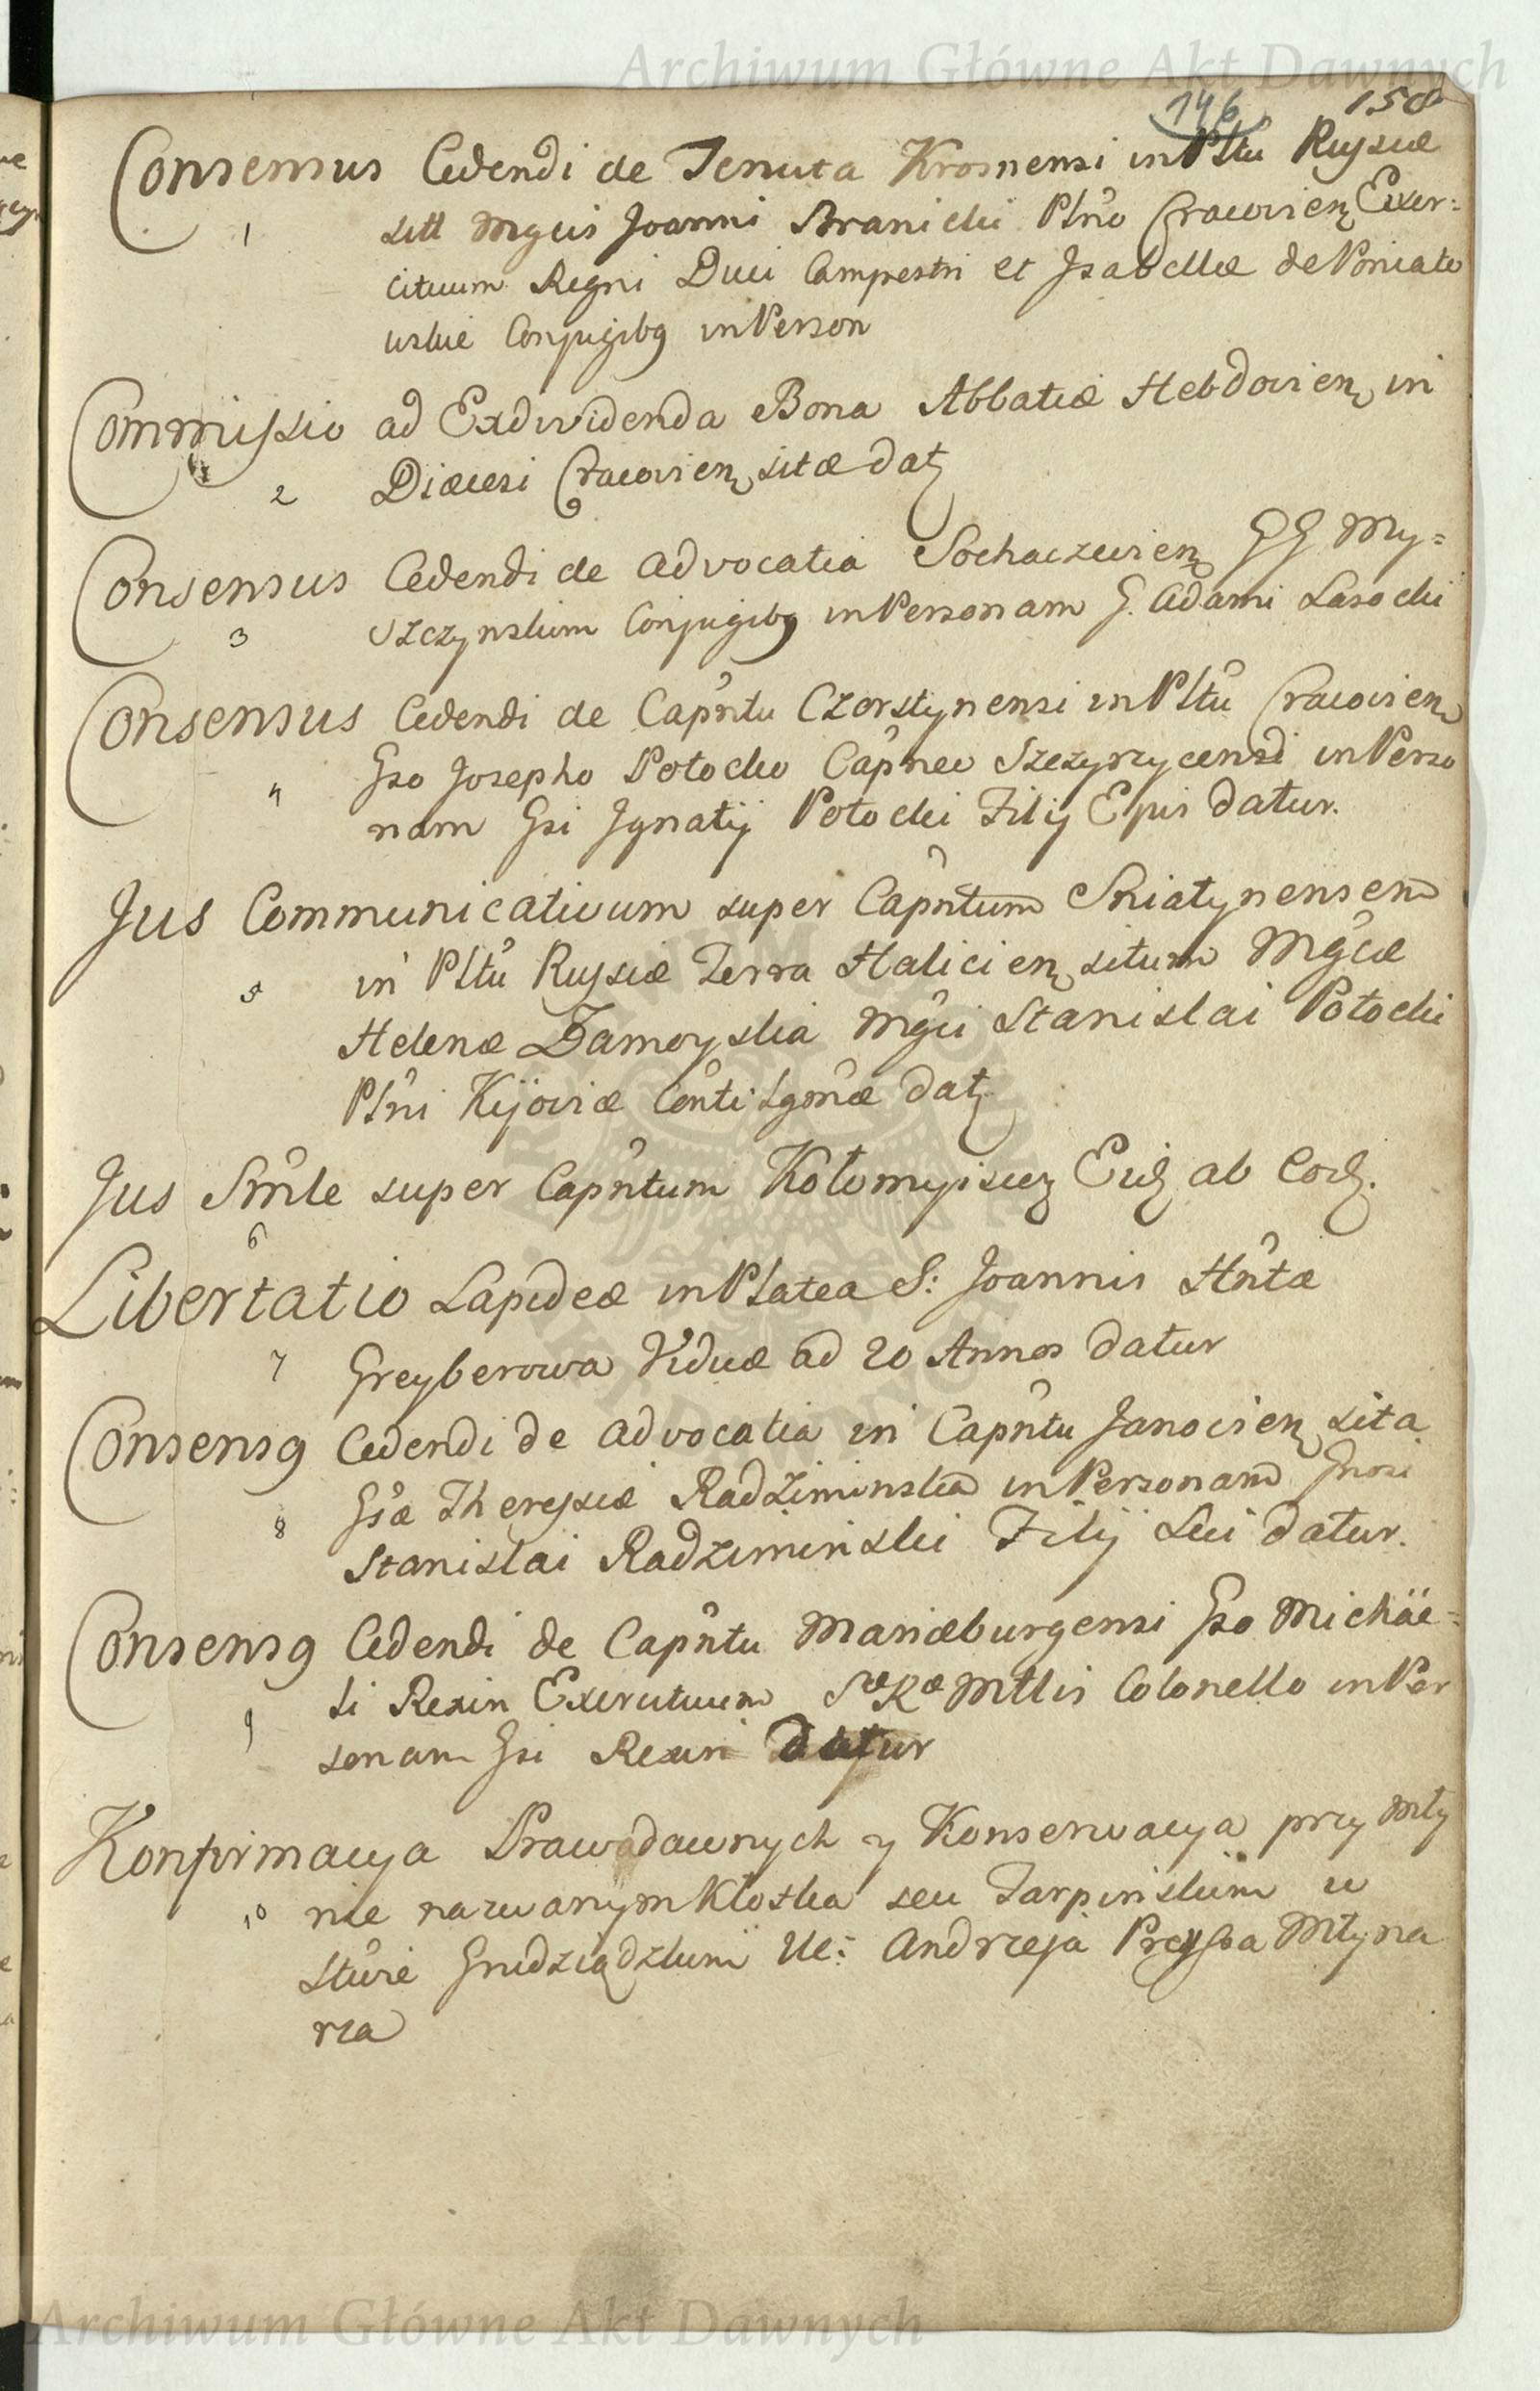 Archiwum Główne Akt Dawnych
146 158
Consensus Cedendi de Tenuta Krosnensi in Pltu Russiæ
1 sitt Mgcis Joanni Branicki Plno Cracovien Exer=
cituum Regni Duci Campestri et Isabellæ de Poniato
wskie Conjugibq in Person
Commissio ad Exdividenda Bona Abbatiæ Hebdovien in
2 Diæcesi Cracovien sitæ dat
Consensus Cedendi de Advocatia Sochaczevien GG My=
3 szczynskim Conjugibq in Personam G. Adami Lasocki
Consensus Cedendi de Capntu Czorstynensi in Pltu Cracovien
4 Gso Josepho Potocki Capneo Szczyrzycensi in Perso
nam Gsi Ignatij Potocki Filij Ejus datur.
Jus Communicativum super Capntum Sniatynensem
5 in Pltu Russiæ Terra Halicien situm Mgcæ
Helenæ Zamoyska Mgci Stanislai Potocki
Plni Kijoviæ Conti Lgmæ dat
Jus Smle super Capntum Kołomyiscen Eid ab Eod.
6
Libertatio Lapideæ in Platea S: Joannis Hntæ
7 Greyberowa Viduæ ad 20 Annos datur
Consensq Cedendi de Advocatia in Capntu Janovien sita
8 Gsæ Theressiæ Radziminska in Personam Gnosi
Stanislai Radziminski Filij Sui datur.
Consensq Cedendi de Capntu Mariæburgensi Gso Michäe=
9 li Rexin Exercituum Sæ Ræ Mttis Colonello in Per
sonam Gsi Rexin datur
Konfirmacya Praw dawnych y Konserwacya przy Mły
10 nie nazwanym Klostka seu Tarpinskim w
Stwie Grudziądzkim Uc: Andrzeja Preyssa Młyna
rza
Archiwum Główne Akt Dawnych